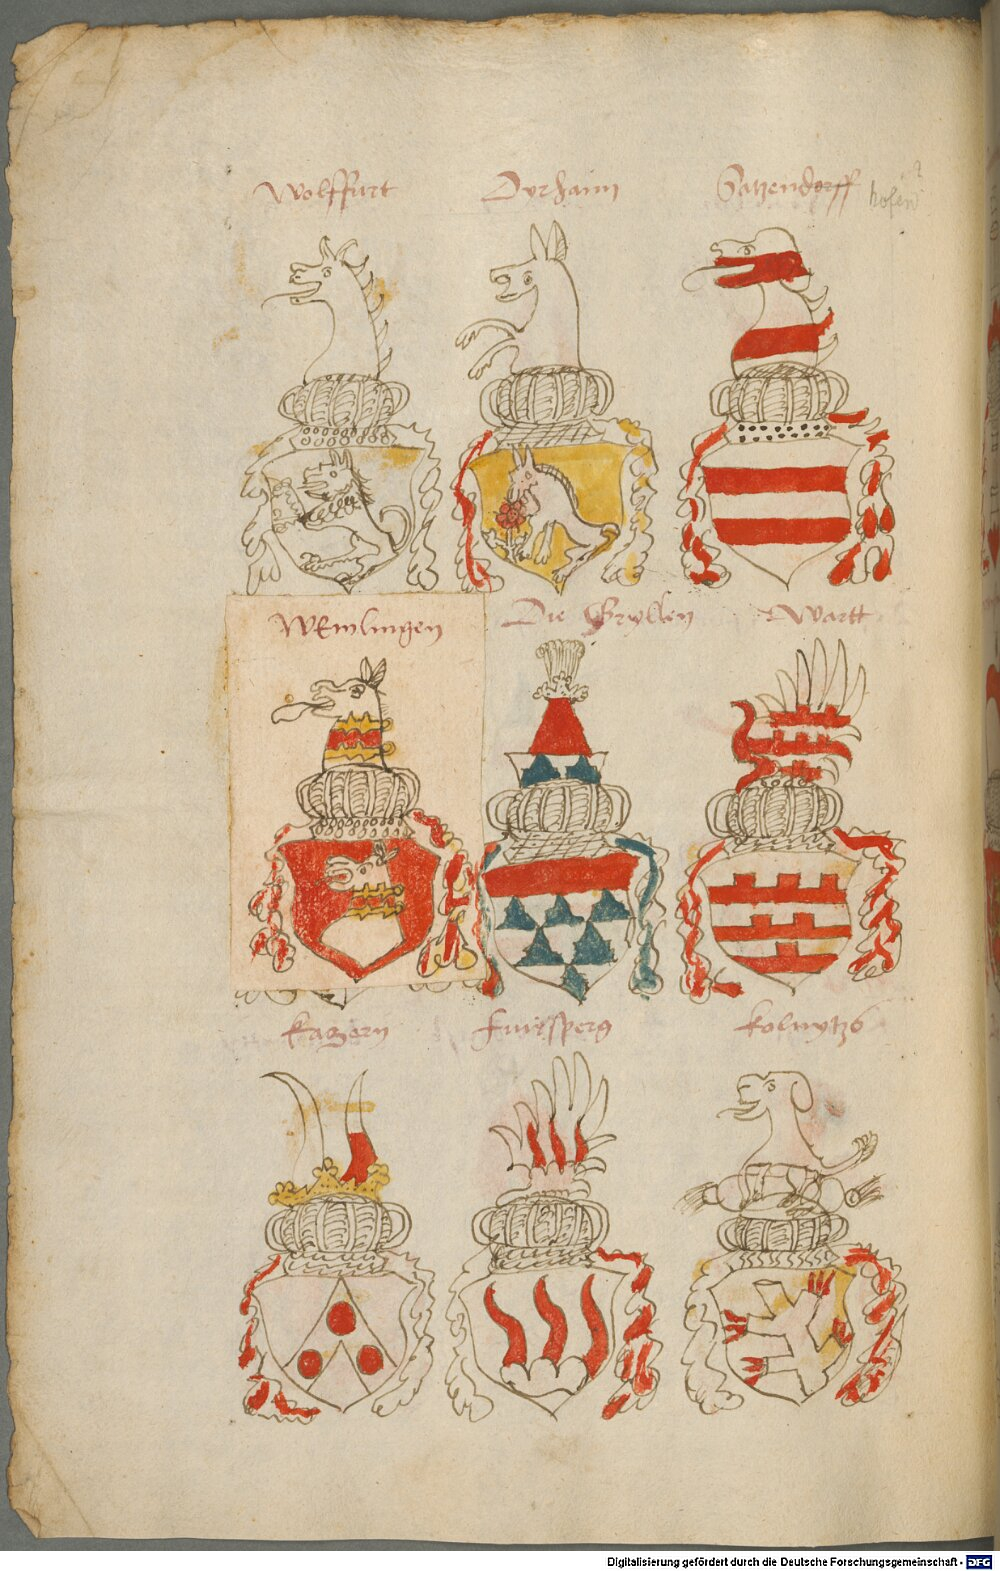 Wolffurt
Dyrhaim
Satzendorff hofen?
WEmlingen
Die Gryllen
Wartt
Katzery
Fursperg
Kolnytz
Digitalisierung gefördert durch die Deutsche Forschungsgemeinschaft - DFG